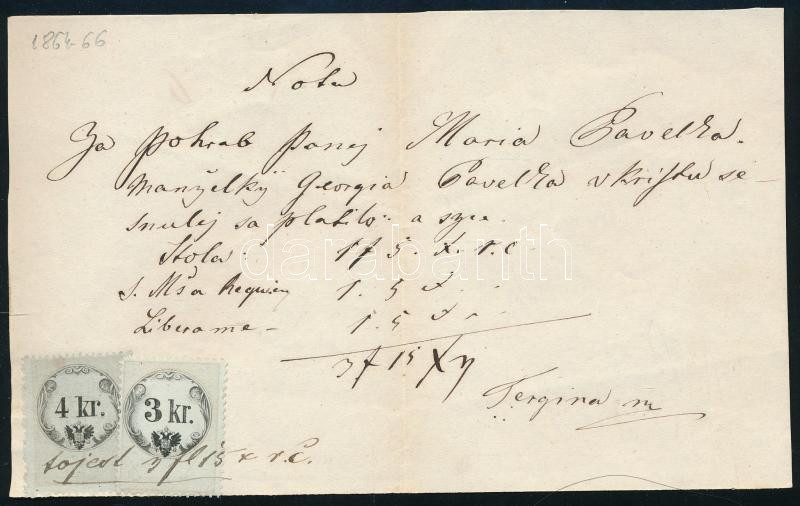 1864-66
Nota
Za pohrab panej Maria Pavelka.
Manželký Georgia Pavelka v Kristu se-
snulej sa platilo: a sice.
Stola: 1 f 5. X. r. c
s. Mša Requiem 1. 5 X . .
Liberame - 1. 5 X . .
3 f 15 X
Tergina
4 kr. 3 kr.
tojest 3 fl 15 x r. c.
darabanth